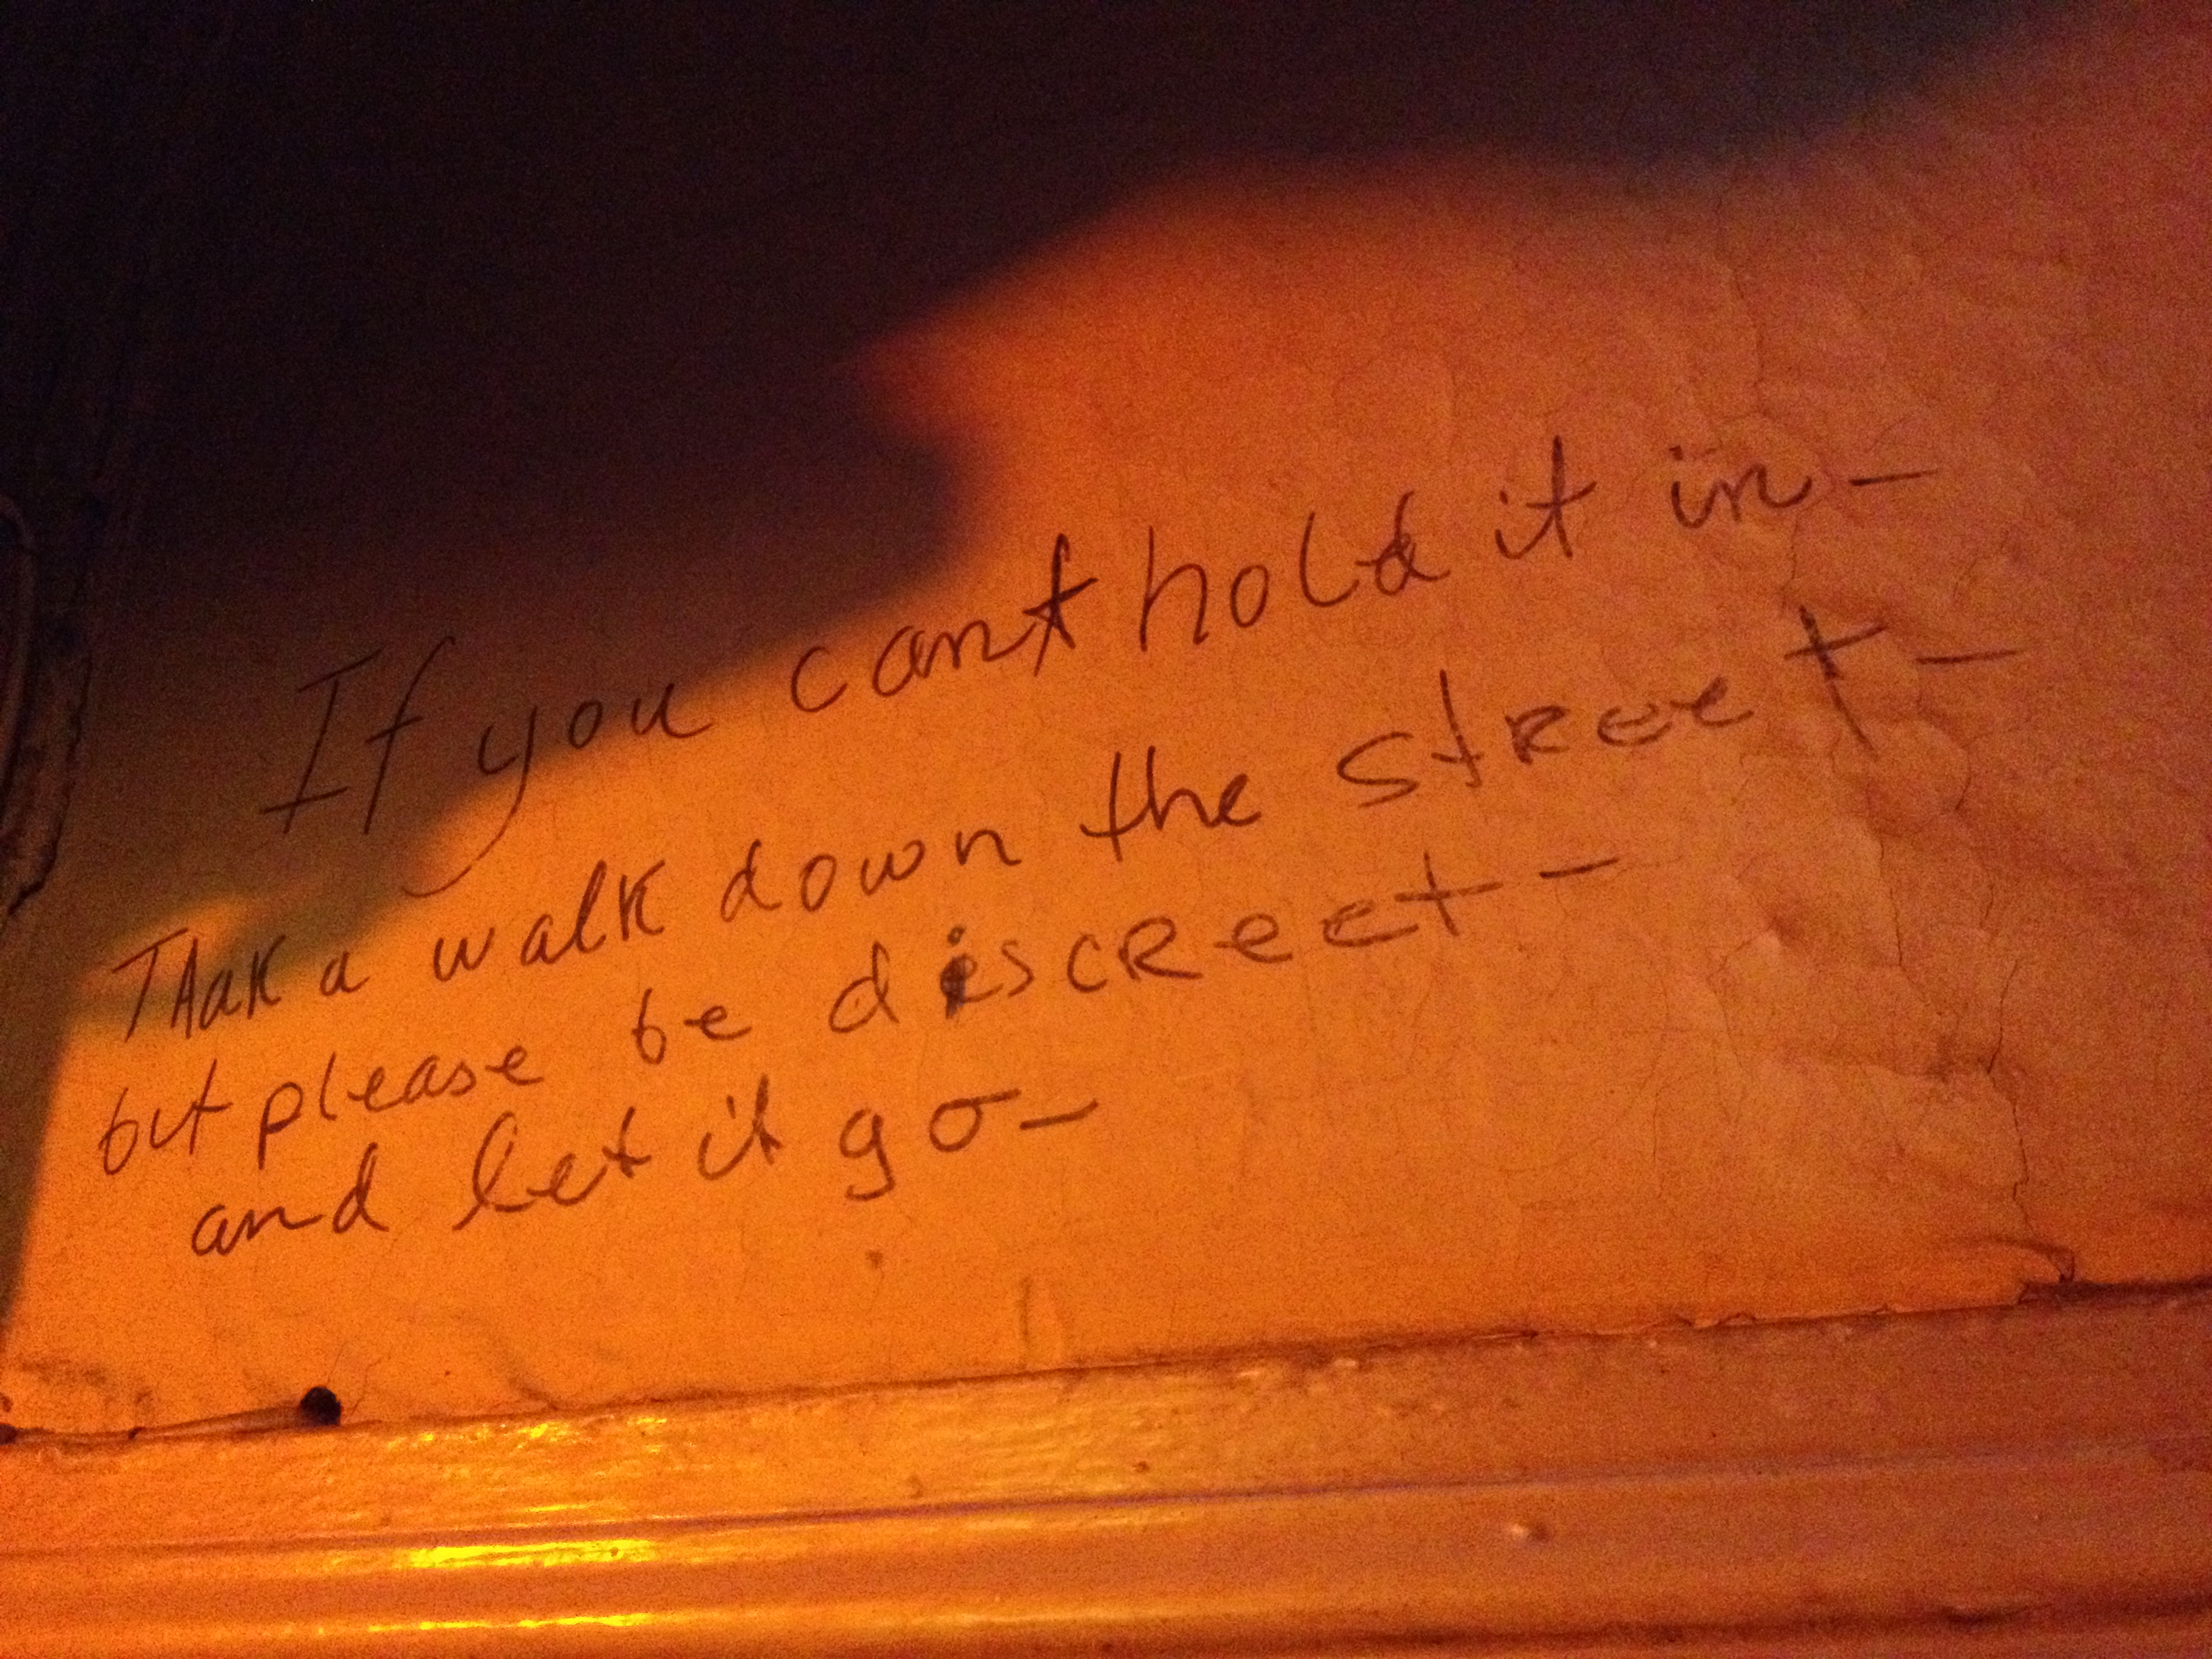 If you can't hold it in-
THAak a walk down the stReet-
but please be discReet-
and let it go-